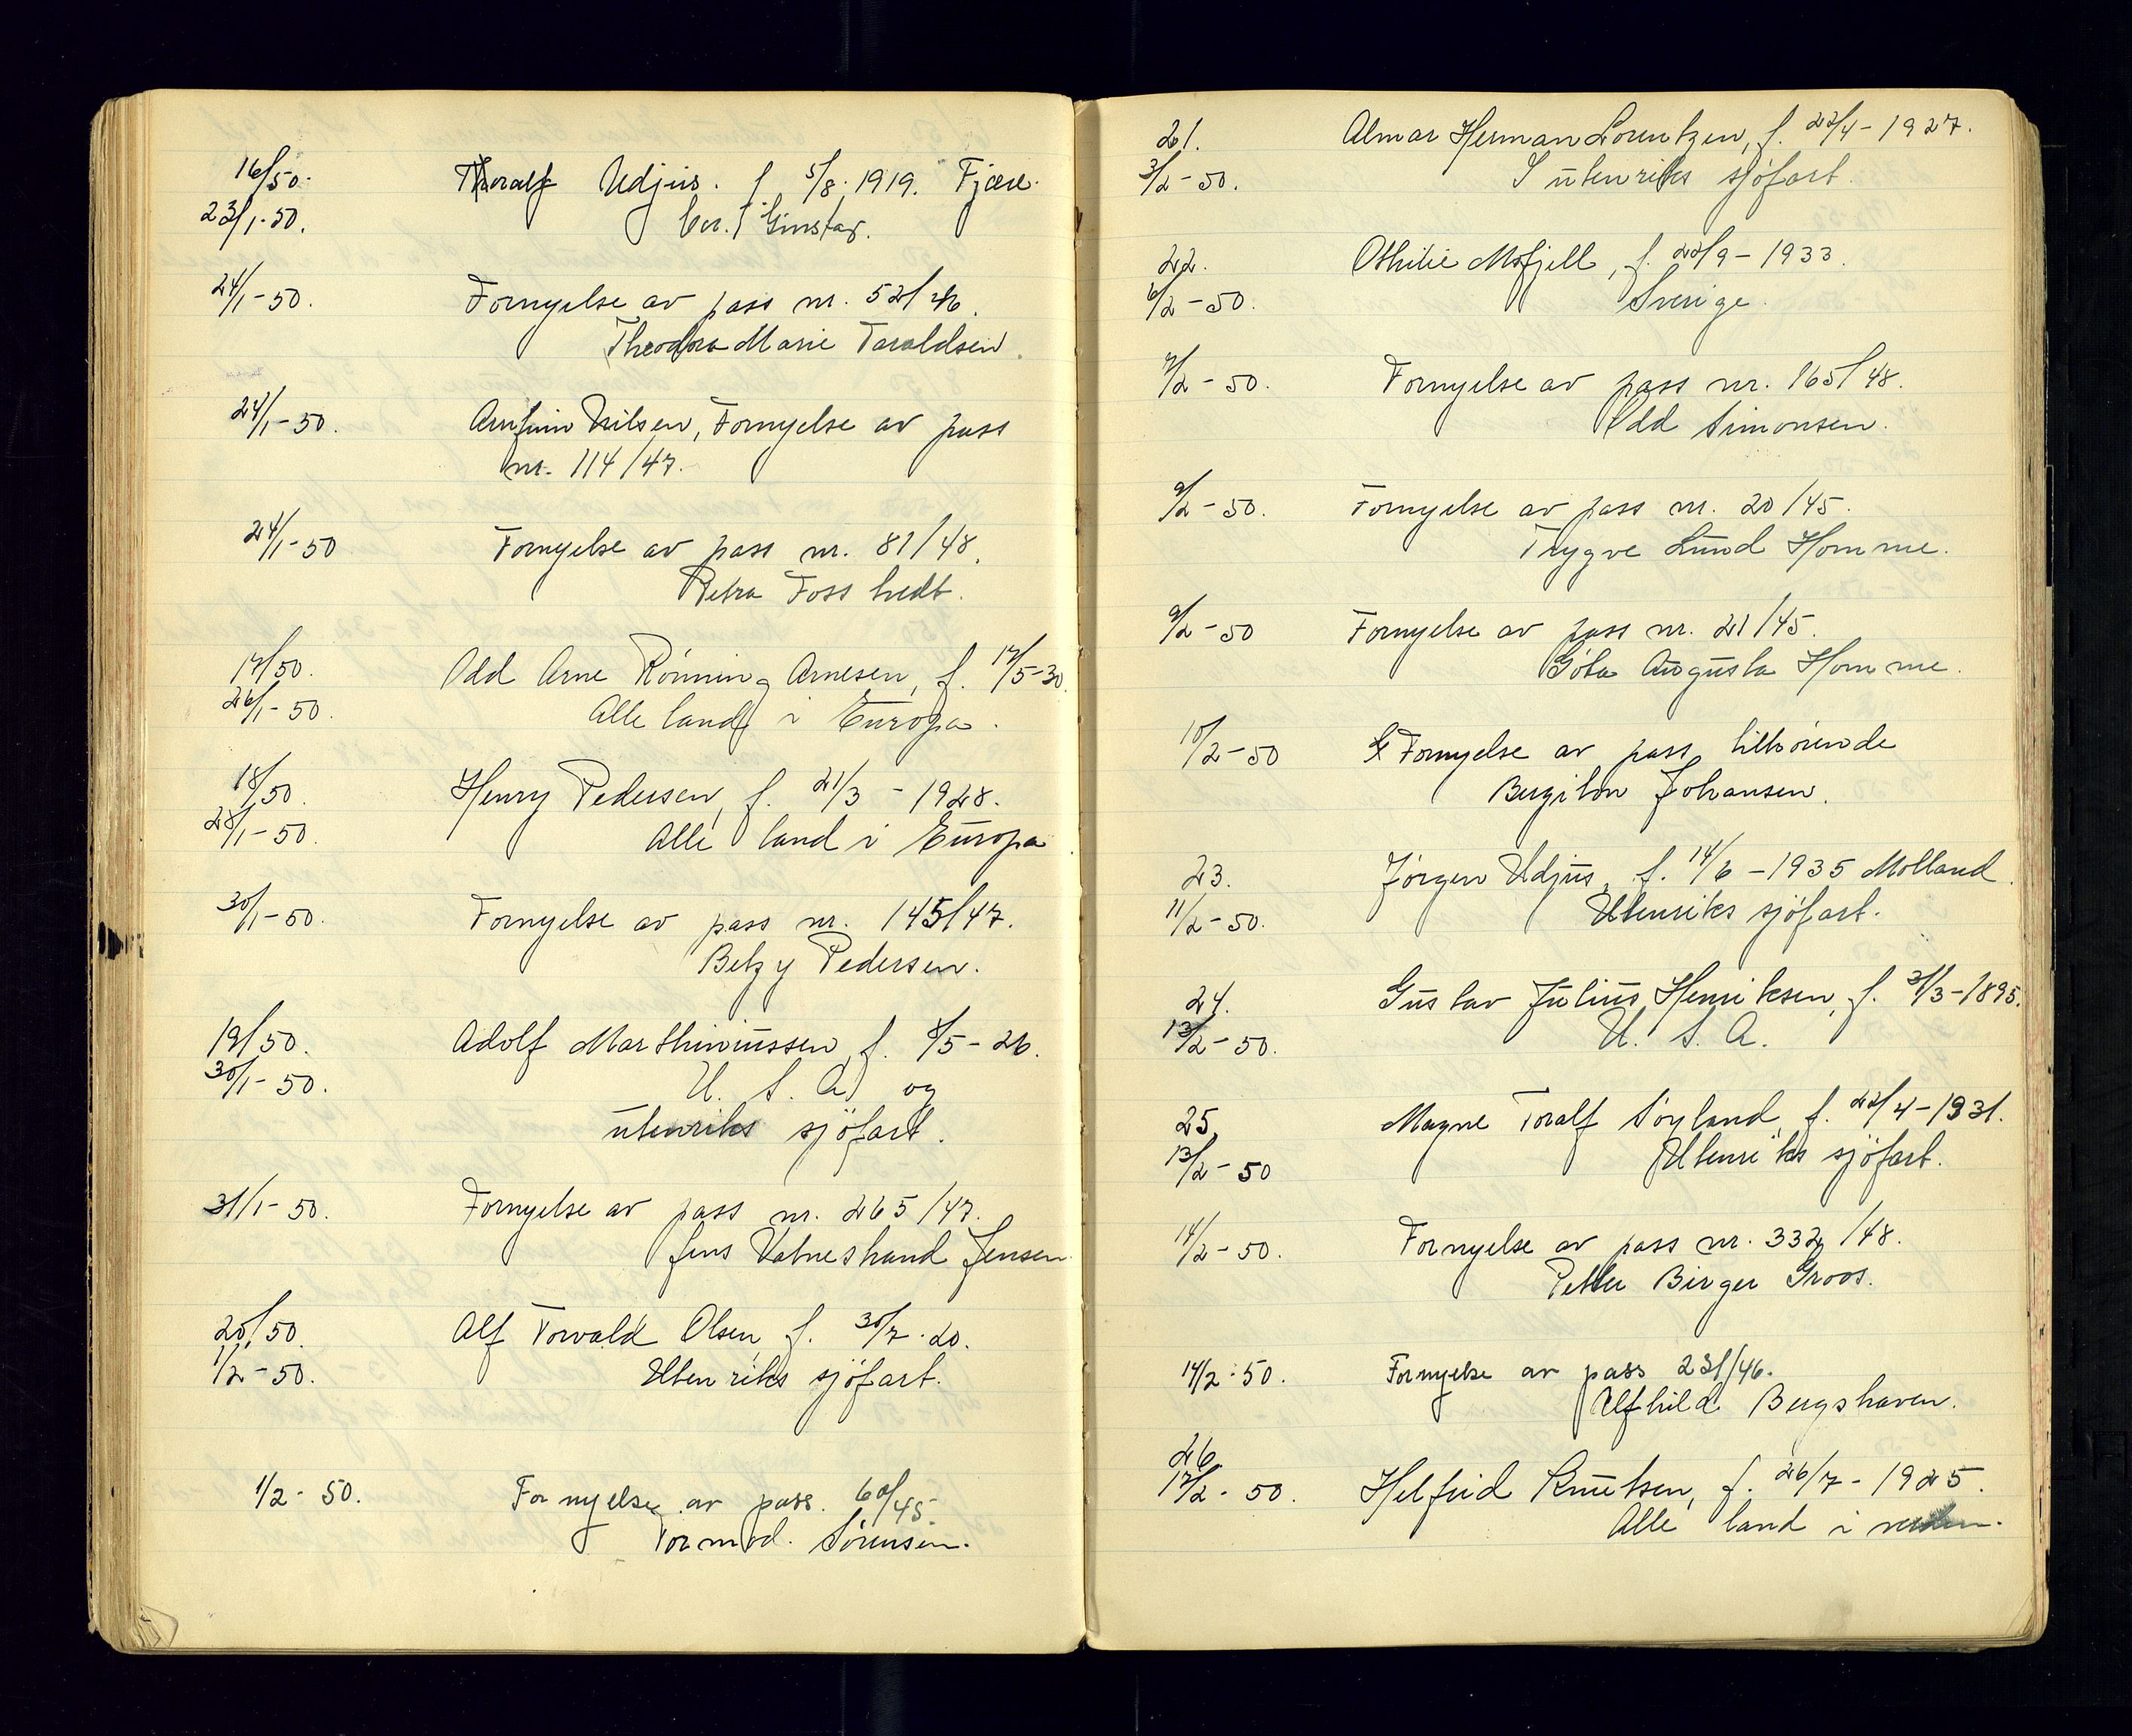 16/50. Thoralf Udjus. f 5/8.1919. Fjære.
23/1-50.
24/1-50. Fornyelse av pass nr. 52/46.
Theodora Marie Taraldsen.
24/1-50. Arnfinn Nilsen, Fornyelse av pass
nr. 114/47.
24/1-50 Fornyelse av pass nr. 81/48.
Petra Foss tvedt.
17/50. Odd Arne Rönning Arnesen, f. 17/5-30.
26/1-50. Alle land i Europa.
18/50. Henry Pedersen, f. 21/3-1928.
28/1-50. Alle land i Europa
30/1-50. Fornyelse av pass nr. 145/47.
Betzy Pedersen.
19/50. Adolf Marthiniussen, f. 8/5-26.
30/1-50. U. S. A. og
utenriks sjöfart.
31/1-50. Fornyelse av pass nr. 265/47.
Jens Vatnestrand Jensen
20/50. Alf Torvald Olsen, f. 30/7.20.
1/2-50. Utenriks sjöfart.
1/2-50. Fornyelse av pass. 60/45.
Tormod. Sörensen.
21. Almar Herman Lorentzen, f. 22/4-1927.
3/2-50. I utenriks sjöfart.
22. Othilie Mofjell, f. 22/9-1933.
6/2-50. Sverige.
7/2-50. Fornyelse av pass nr. 165/48.
Odd Simonsen.
9/2-50. Fornyelse av pass nr. 20/45.
Trygve Lund Homme.
9/2-50 Fornyelse av pass nr. 21/45.
Göta Augusta Homme.
10/2-50 Fornyelse av pass tilhörende
Bergiton Johansen.
23. Jörgen Udjus, f. 14/6-1935 Molland.
11/2-50. Utenriks sjöfart.
24. Gustav Julius Henriksen, f. 31/3-1895.
13/2-50. U. S. A.
25. Magne Toralf Söyland, f. 22/4-1931.
13/2-50 Utenriks sjöfart.
14/2-50. Fornyelse av pass nr. 332/48.
Petter Birger Groos.
14/2-50. Fornyelse av pass 231/46.
Alfhild Bergshaven.
26. Helfrid Knutsen, f. 26/7-1925.
17/2-50. Alle land i verden.